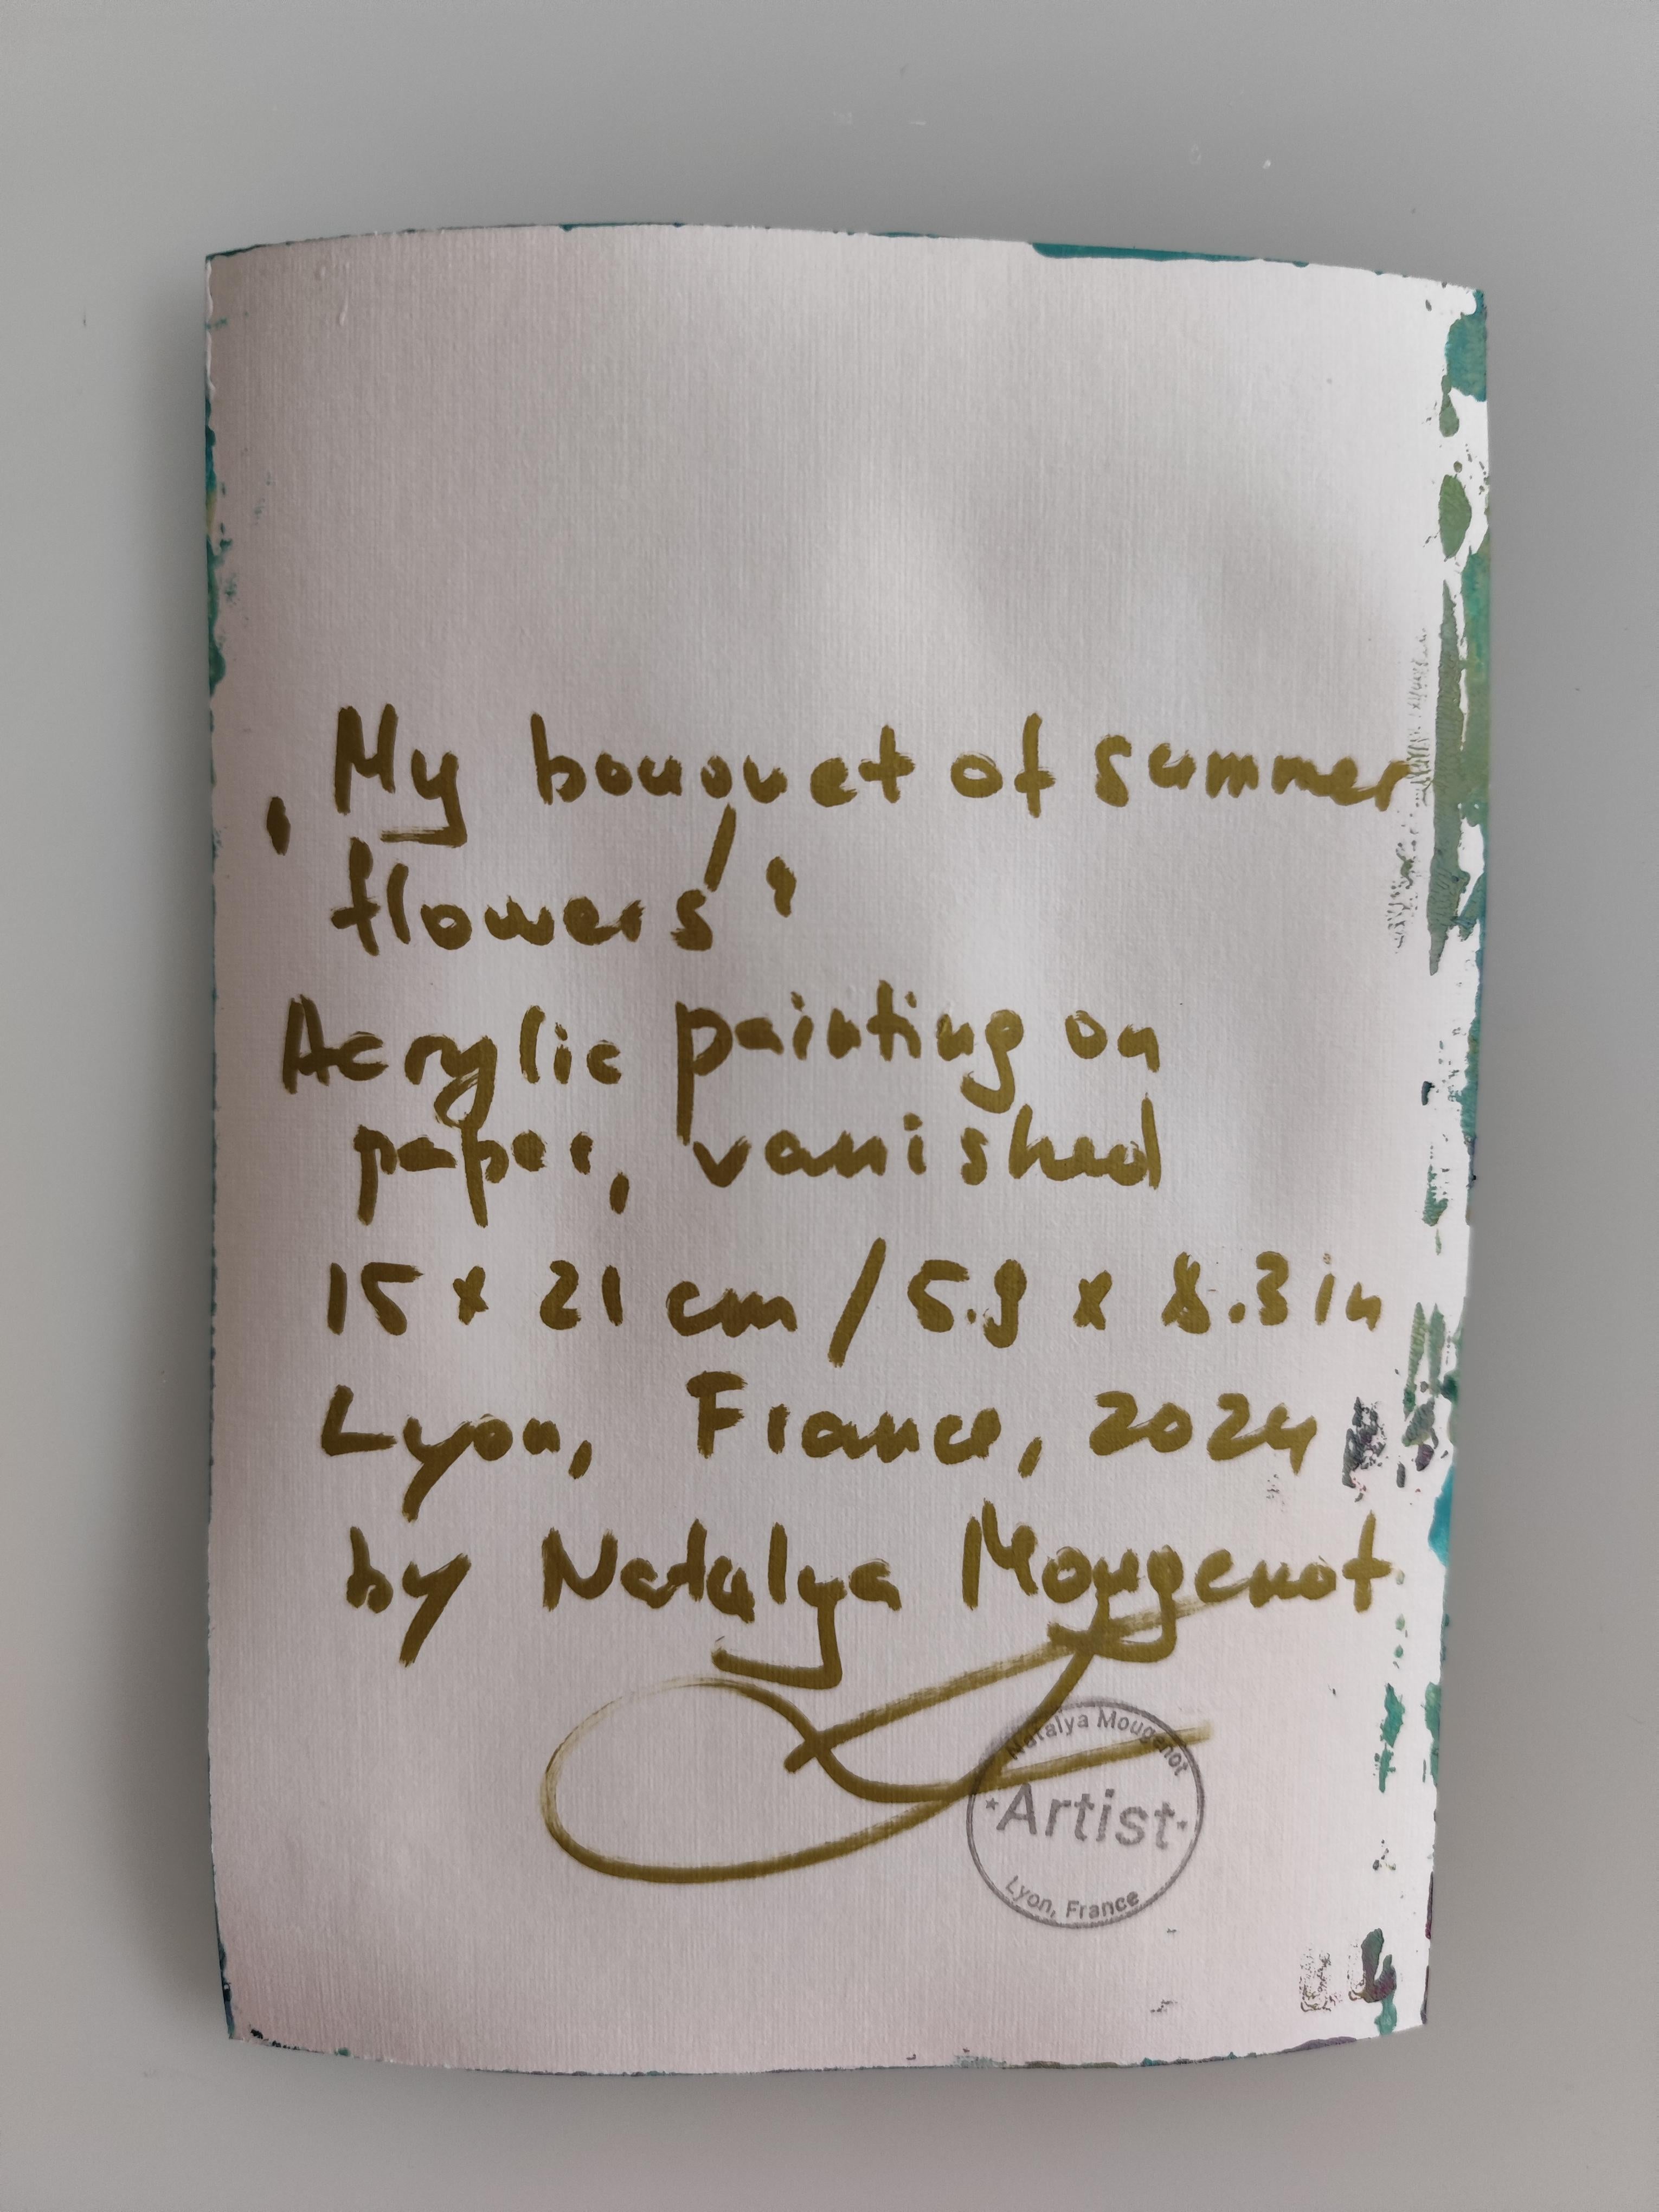 , My bouquet of summer
flowers'
Acrylic painting on
paper, vanished
15 x 21 cm / 5.9 x 8.3 in
Lyon, France, 2024
by Natalya Mougenot
Natalya Mougenot
Artist
Lyon, France